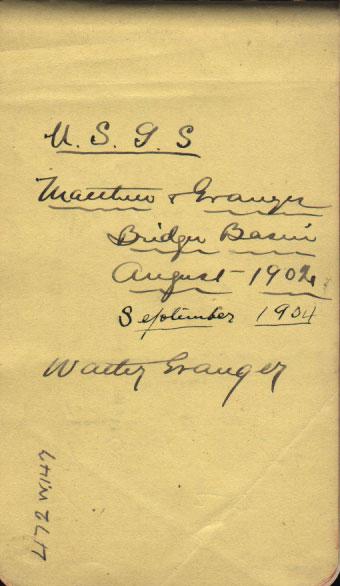 U. S. G. S
Matthew & Granger
Bridger Basin
August - 1902
September 1904
Walter Granger